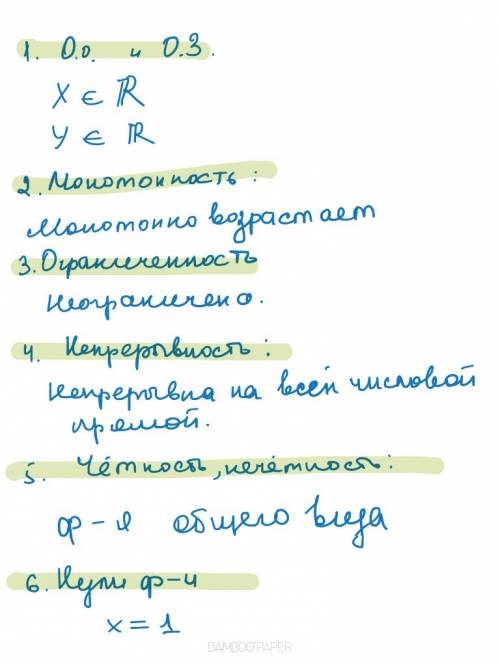 1. О.о. и О.З.
X ∈ ℝ
У ∈ ℝ
2. Монотонность:
Монотонно возрастает
3. Ограниченность
Неограничено.
4. Непрерывность:
Непрерывна на всей числовой
прямой.
5. Чётность, нечётность:
ф-я общего вида
6. Нули ф-и
x = 1
BAMBOOPAPER